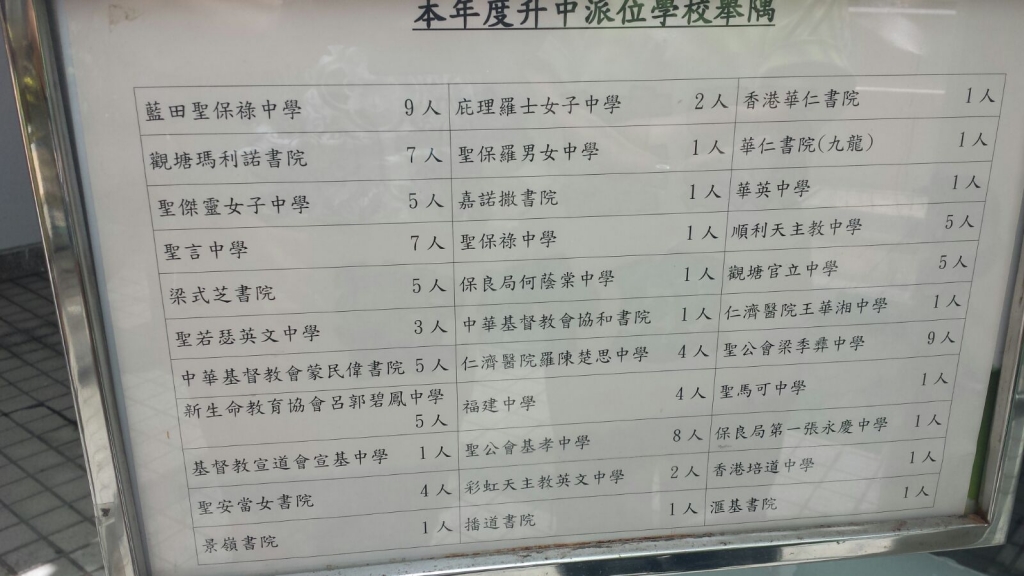 本年度升中派位學校舉隅
藍田聖保祿中學 9人 庇理羅士女子中學 2人 香港華仁書院 1人
觀塘瑪利諾書院 7人 聖保羅男女中學 1人 華仁書院(九龍) 1人
聖傑靈女子中學 5人 嘉諾撒書院 1人 華英中學 1人
聖言中學 7人 聖保祿中學 1人 順利天主教中學 5人
梁式芝書院 5人 保良局何蔭棠中學 1人 觀塘官立中學 5人
聖若瑟英文中學 3人 中華基督教會協和書院 1人 仁濟醫院王華湘中學 1人
中華基督教會蒙民偉書院 5人 仁濟醫院羅陳楚思中學 4人 聖公會梁季彝中學 9人
新生命教育協會呂郭碧鳳中學 福建中學 4人 聖馬可中學 1人
5人
基督教宣道會宣基中學 1人 聖公會基孝中學 8人 保良局第一張永慶中學 1人
聖安當女書院 4人 彩虹天主教英文中學 2人 香港培道中學 1人
景嶺書院 1人 播道書院 1人 滙基書院 1人